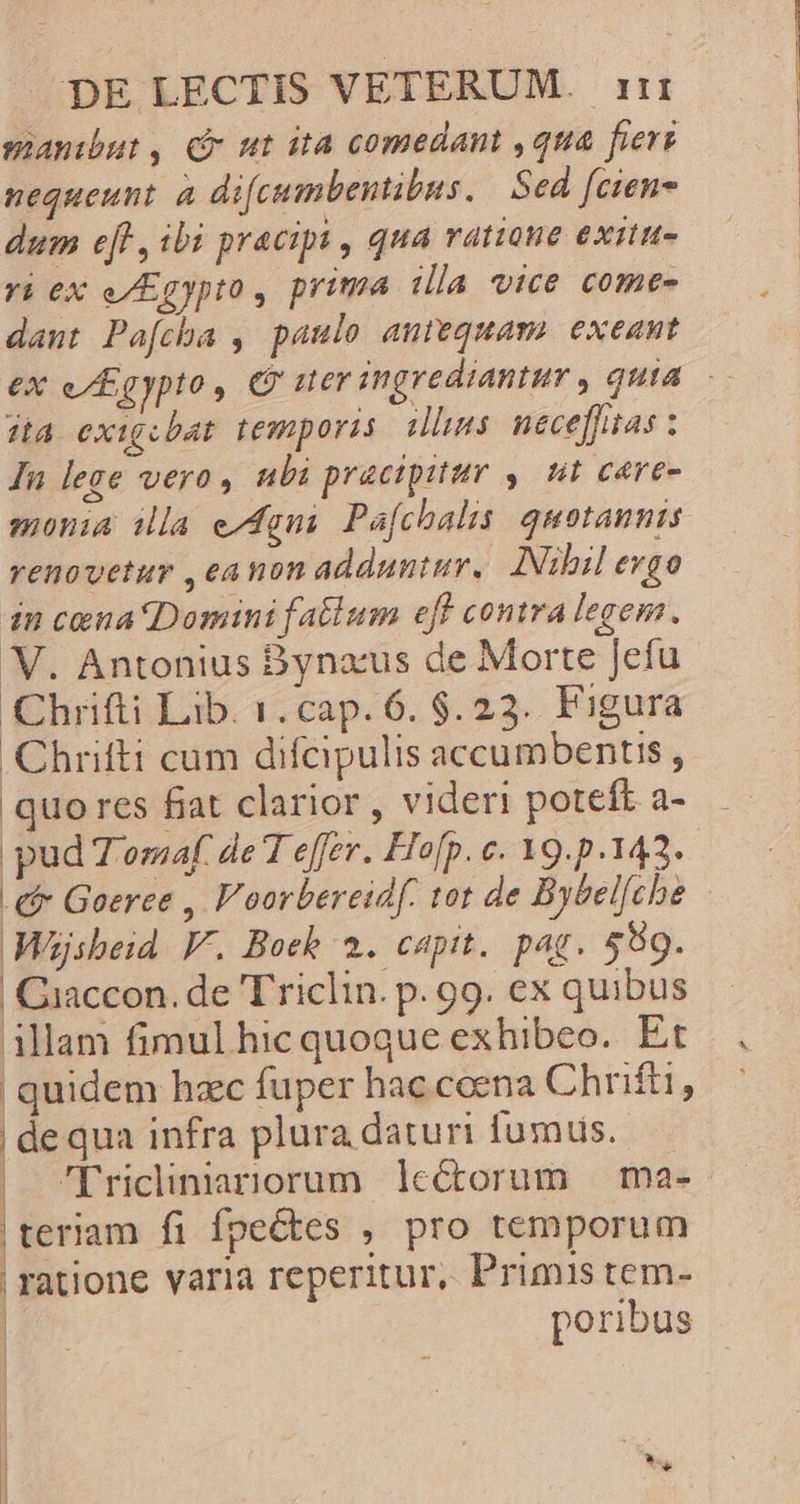 DE LECTIS VETERUM. 111
manibut , & ut ita comedant , quæ fieri
nequeunt à diſcumbentibus. Sed ſcien-
dum eſt , ibi præcipi , qua ratione exitu-
ri ex Ægypto , prima illa vice come-
dant Paſcha , paulo antequam exeant
ex Ægypto , & iter ingrediantur , quia
ita exigebat temporis illius neceſſitas :
In lege vero , ubi præcipitur , ut cære-
monia illa Agni Paſchalis quotannis
renovetur , ea non adduntur. Nihil ergo
in cœna Domini factum eſt contra legem.
V. Antonius Bynæus de Morte Jeſu
Chriſti Lib. 1. cap. 6. §. 23. Figura
Chriſti cum diſcipulis accumbentis ,
quo res fiat clarior , videri poteſt a-
pud Tomaſ. de Teſſer. Hoſp. c. 19. p. 143.
& Goeree , Voorbereidſ. tot de Bybelſche
Wijsheid V. Boek 2. capit. pag. 589.
Ciaccon. de Triclin. p. 99. ex quibus
illam ſimul hic quoque exhibeo. Et
quidem hæc ſuper hac cœna Chriſti ,
de qua infra plura daturi ſumus.
Tricliniariorum lectorum ma-
teriam ſi ſpectes , pro temporum
ratione varia reperitur. Primis tem-
poribus